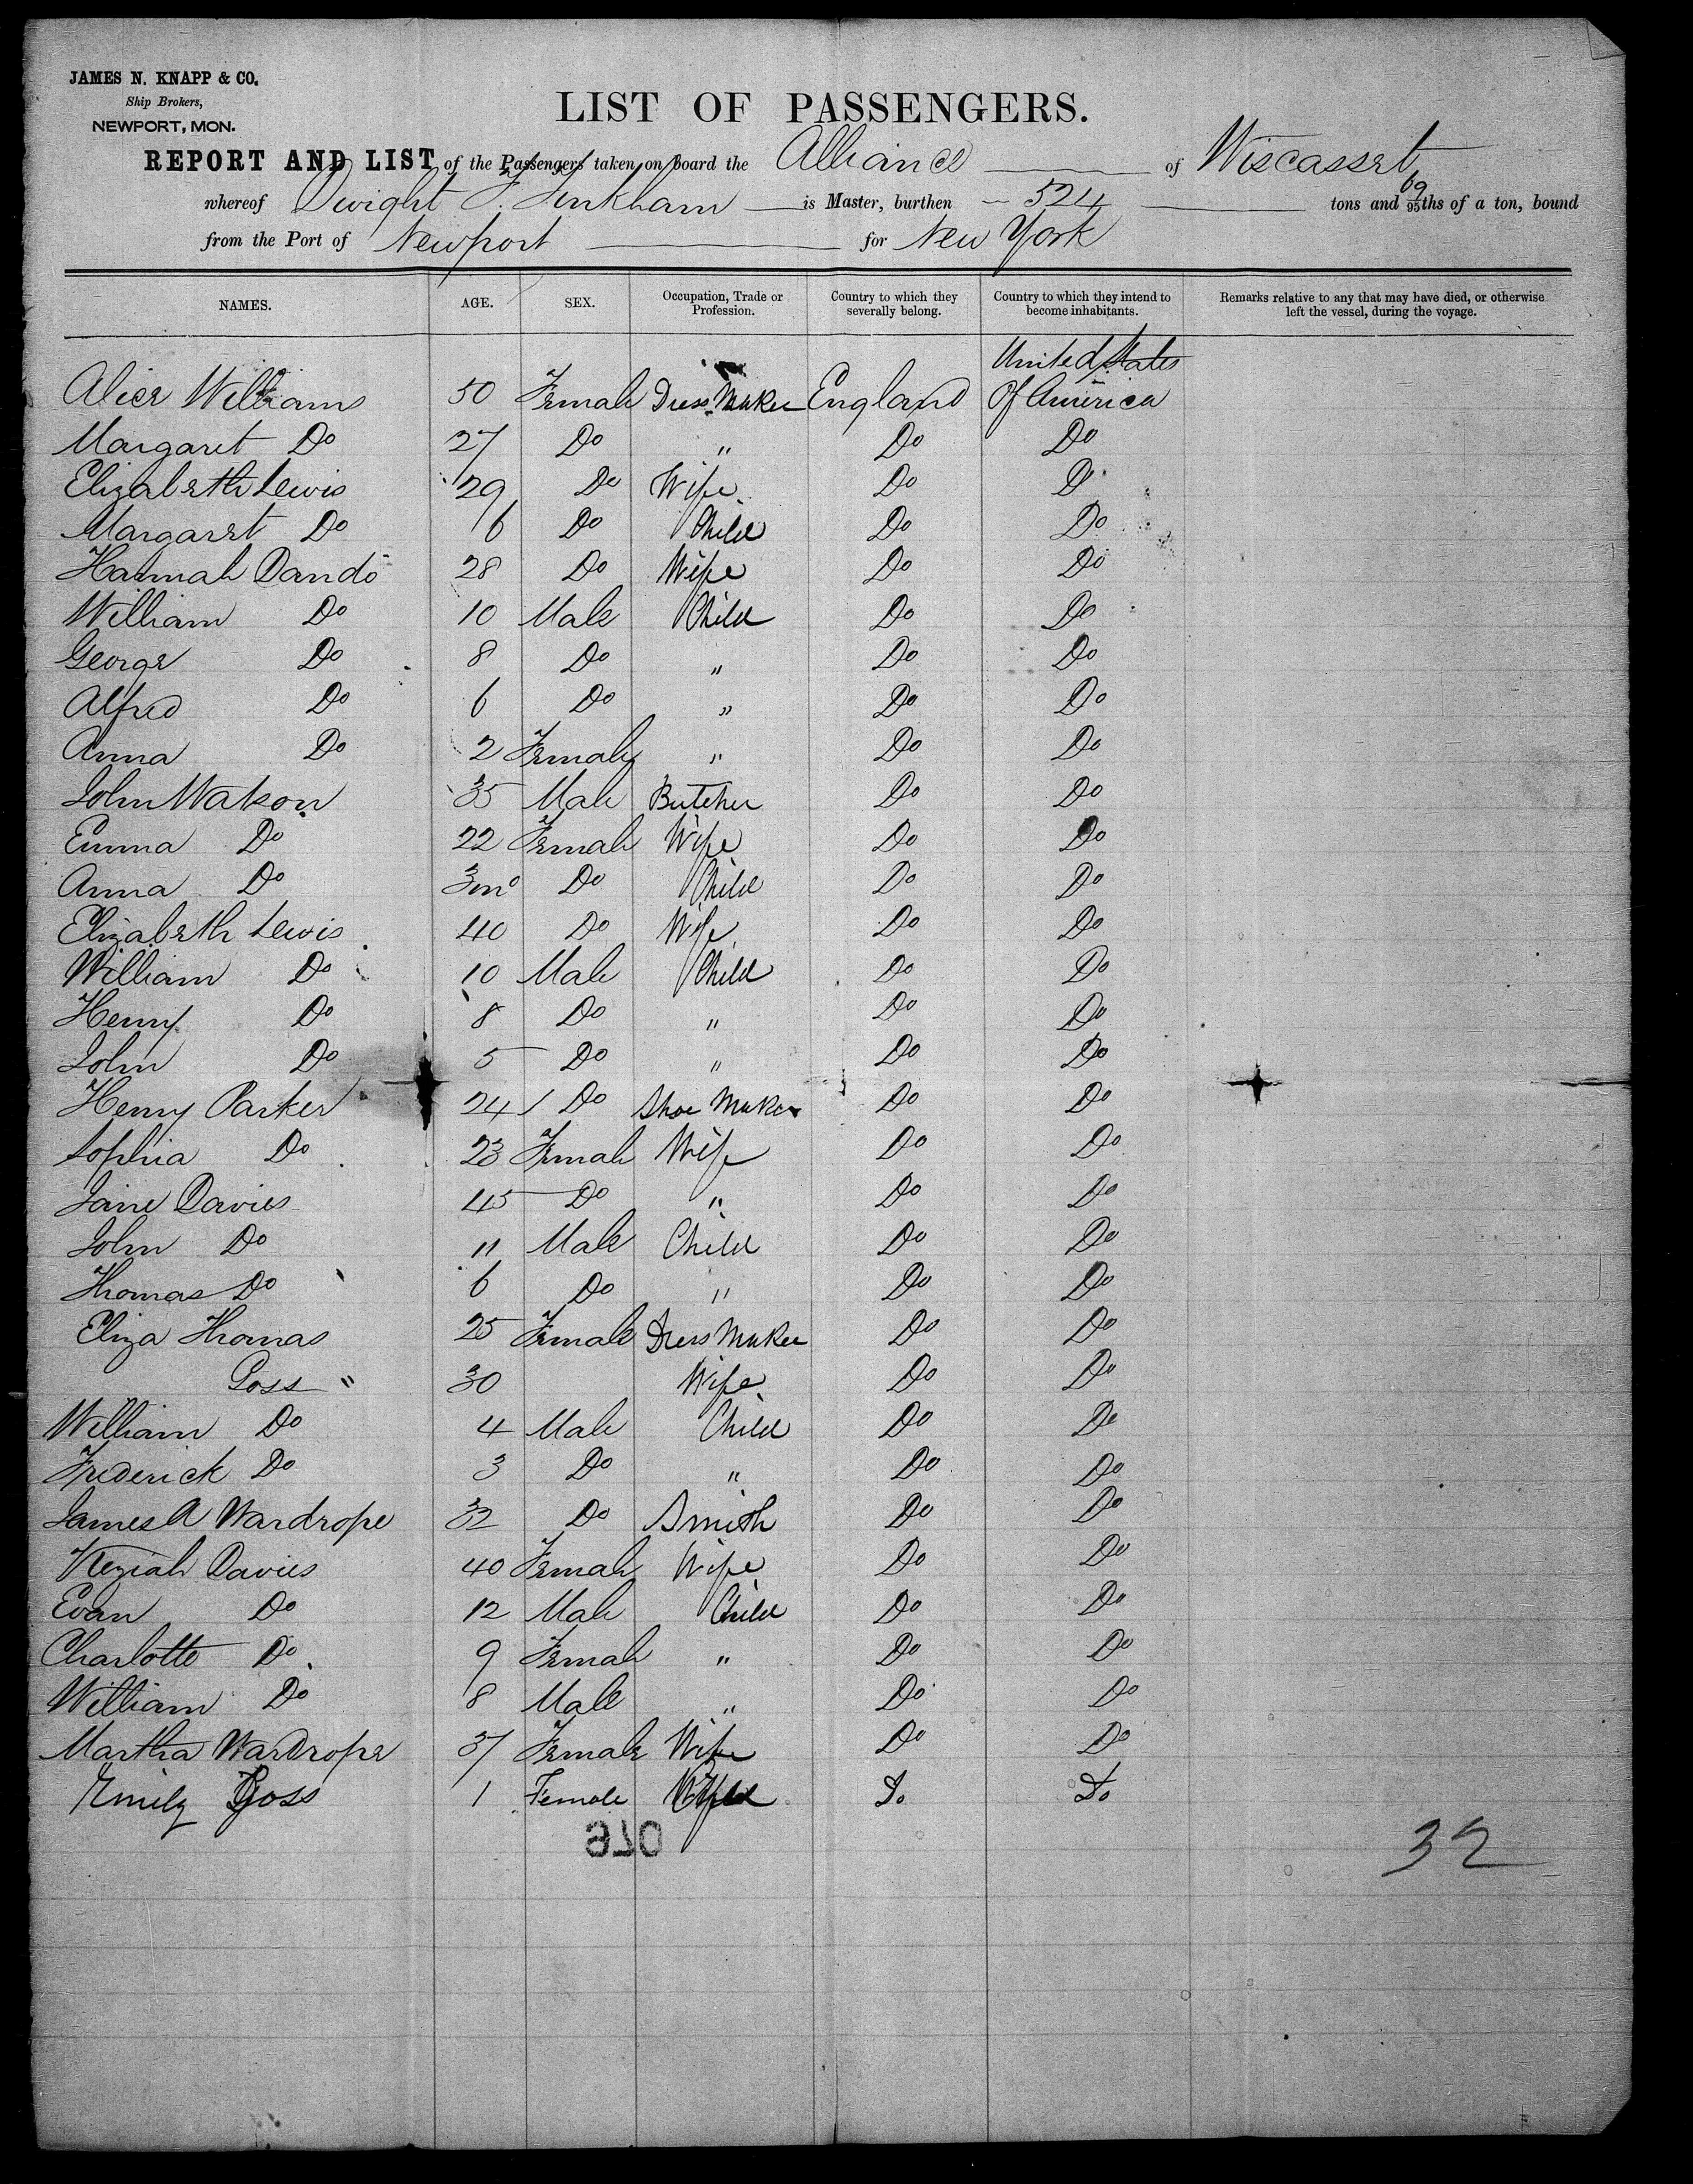 JAMES N. KNAPP & CO.
Ship Brokers,
NEWPORT, MON.
LIST OF PASSENGERS.
REPORT AND LIST of the Passengers taken on board the Alliance of Wiscasset
whereof Dwight F. Tinkham is Master, burthen 524 tons and 69/95ths of a ton, bound
from the Port of Newport for New York
NAMES. AGE. SEX. Occupation, Trade or Profession. Country to which they severally belong. Country to which they intend to become inhabitants. Remarks relative to any that may have died, or otherwise left the vessel, during the voyage.
United States
Alice Williams 50 Female Dress Maker England Of America
Margaret Do 27 Do " Do Do
Elizabeth Lewis 29 Do Wife Do D
Margaret Do 6 Do Child Do Do
Hannah Dando 28 Do Wife Do Do
William Do 10 Male Child Do Do
George Do 8 Do " Do Do
Alfred Do 6 Do " Do Do
Anna Do 2 Female " Do Do
John Watson 35 Male Butcher Do Do
Emma Do 22 Female Wife Do Do
Anna Do 3mo Do Child Do Do
Elizabeth Lewis 40 Do Wife Do Do
William Do 10 Male Child Do Do
Henry Do 8 Do " Do Do
John Do 5 Do " Do Do
Henry Parker 24 Do Shoe Maker Do Do
Sophia Do 23 Female Wife Do Do
Jane Davies 45 Do " Do Do
John Do 11 Male Child Do Do
Thomas Do 6 Do " Do Do
Eliza Thomas 25 Female Dress Maker Do Do
Goss " 30 Wife Do Do
William Do 4 Male Child Do Do
Frederick Do 3 Do " Do Do
James A Wardrope 32 Do Smith Do Do
Keziah Davies 40 Female Wife Do Do
Evan Do 12 Male Child Do Do
Charlotte Do 9 Female " Do Do
William Do 8 Male " Do Do
Martha Wardrope 37 Female Wife Do Do
Emily Goss 1 Female Do Do
970
32